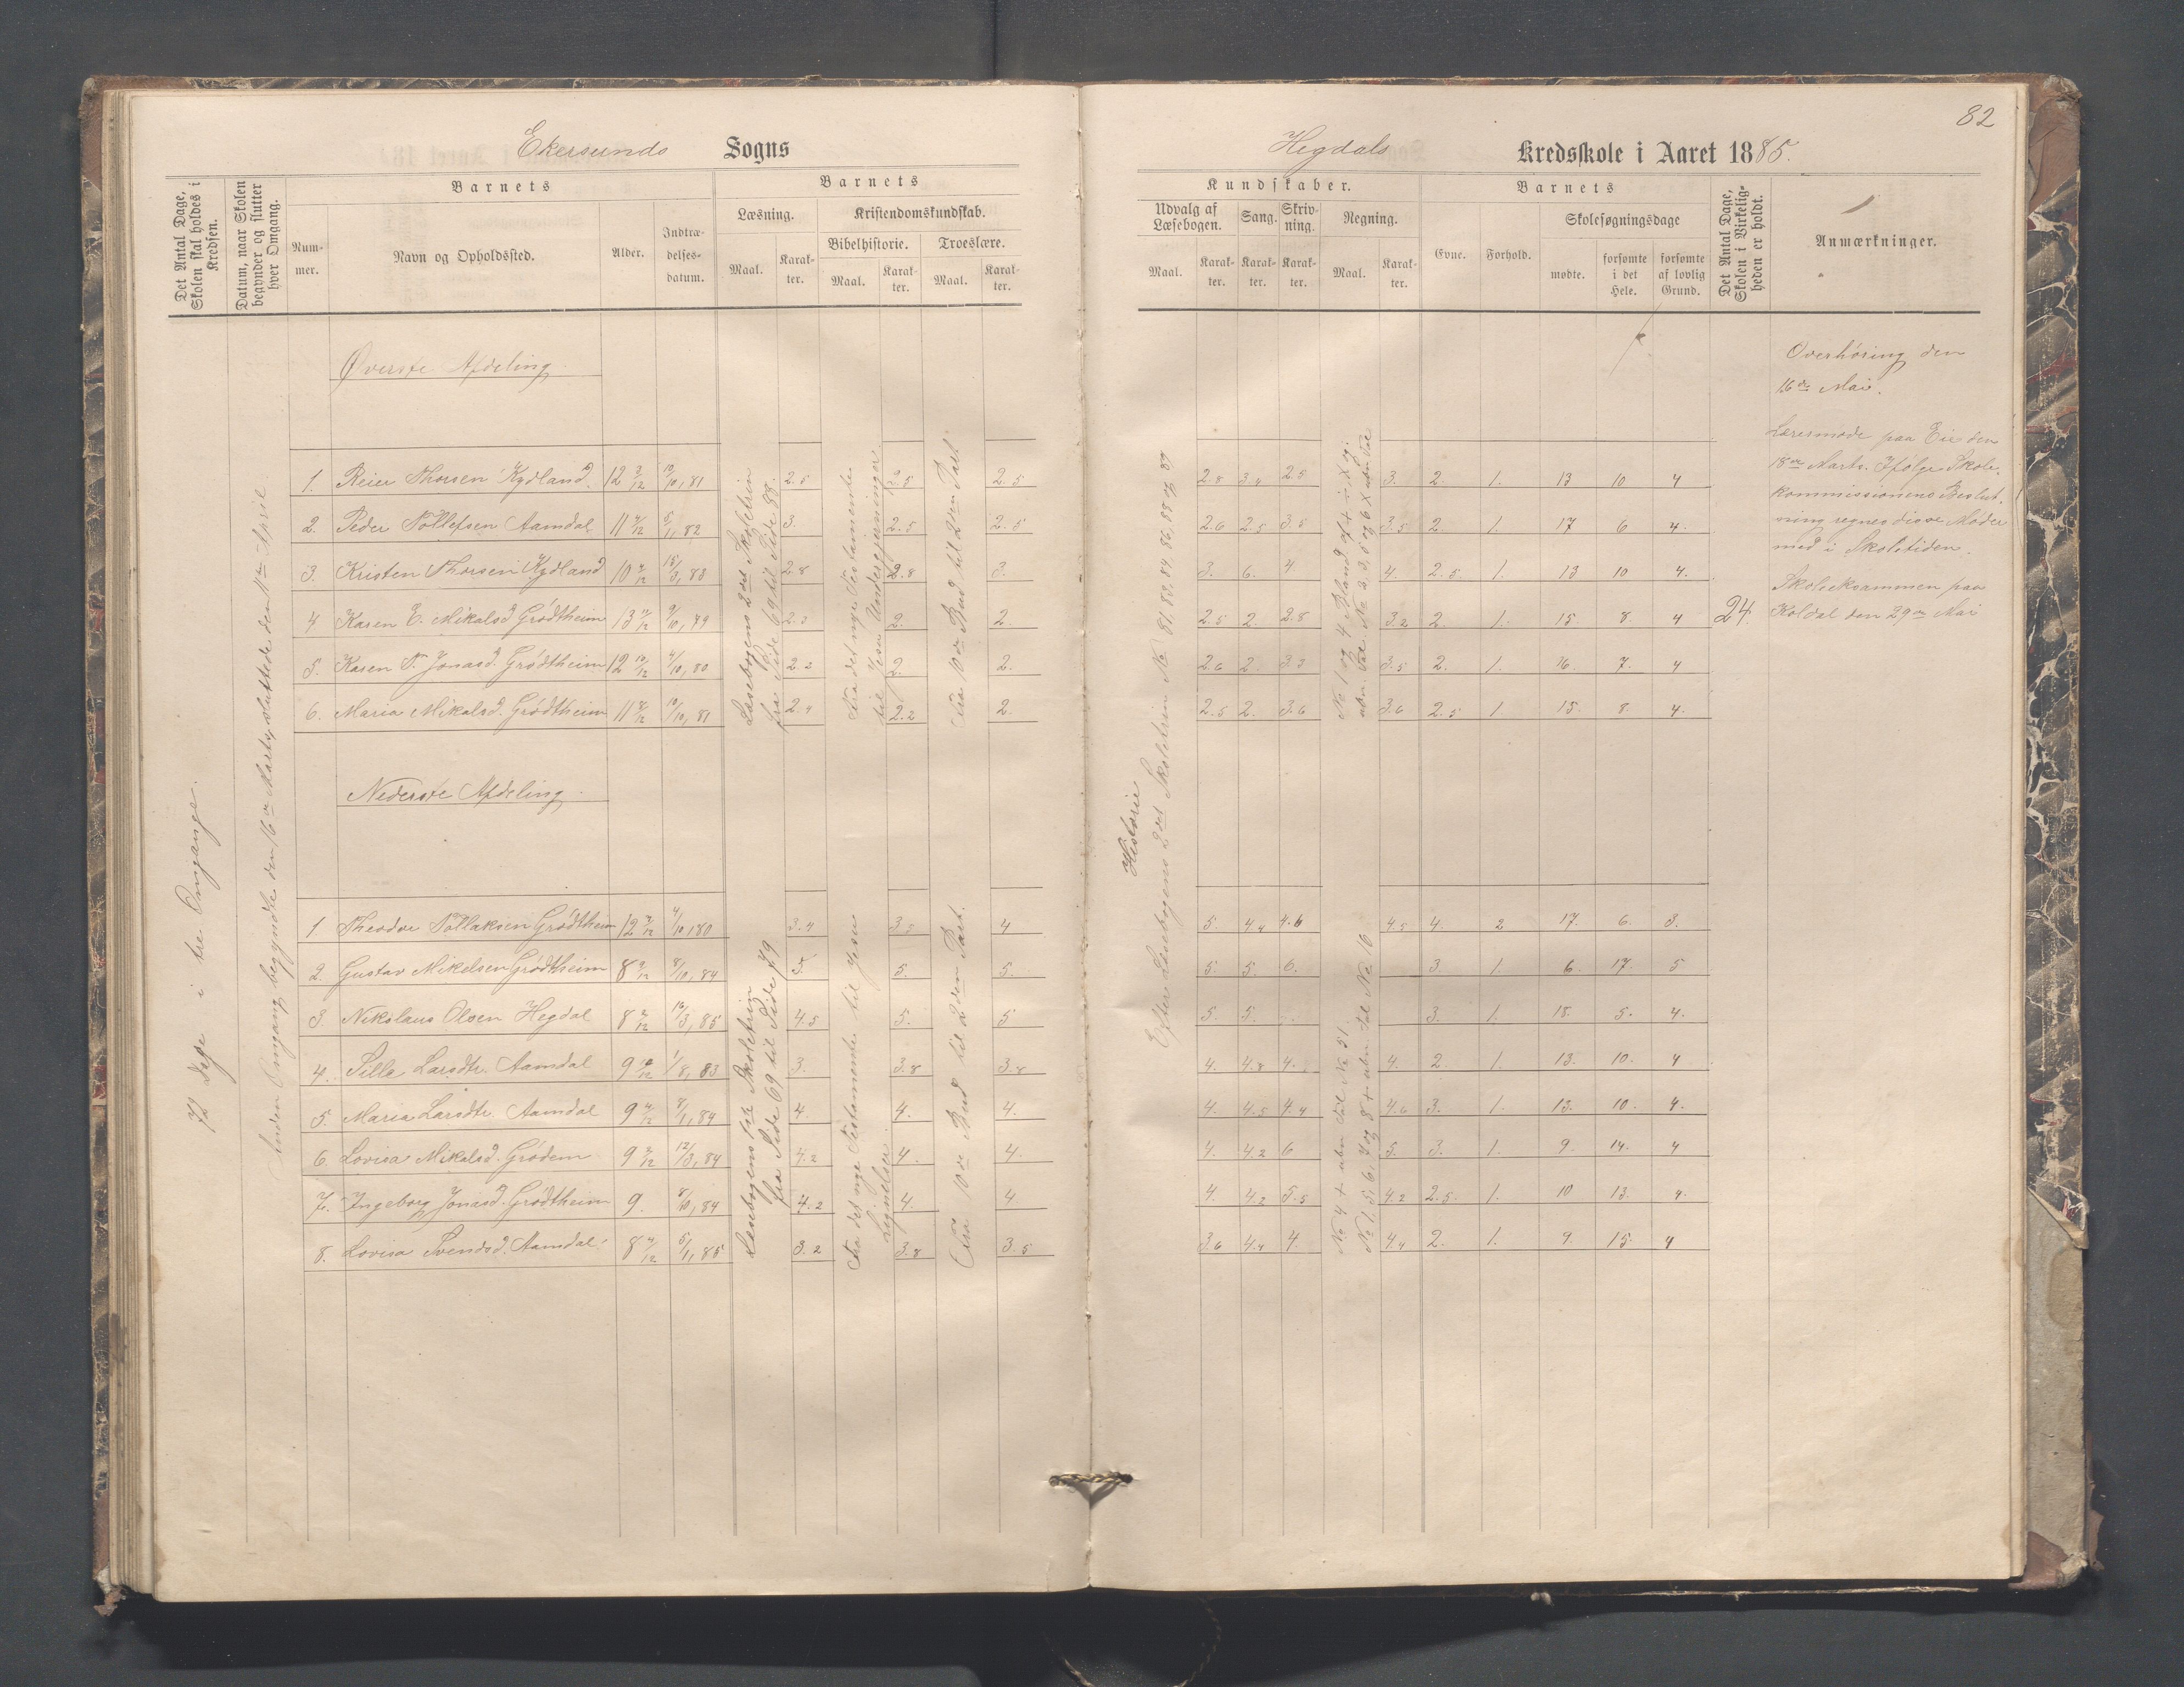 82
Ekersunds Sogns
Hegdals Kredsskole i Aaret 1885.
Det Antal Dage, Skolen skal holdes i Kredsen.
Datum, naar Skolen begynder og slutter hver Omgang.
Barnets
Nummer.
Navn og Opholdssted.
Alder.
Indtrædelsesdatum.
Barnets
Læsning.
Maal.
Karakter.
Kristendomskundskab.
Bibelhistorie.
Maal.
Karakter.
Troeslære.
Maal.
Karakter.
Kundskaber.
Udvalg af Læsebogen.
Maal.
Karakter.
Sang.
Karakter.
Skrivning.
Karakter.
Regning.
Maal.
Karakter.
Barnets
Evne.
Forhold.
Skolesøgningsdage
mødte.
forsømte i det Hele.
forsømte af lovlig Grund.
Det Antal Dage, Skolen i Virkeligheden er holdt.
Anmærkninger.
72 Dage i tre Omgange.
Anden Omgang begyndte den 16de Marts, sluttede den 11te April
Øverste Afdeling
1. Reier Thorsen Kydland. 12 3/12 10/10, 81 2.5 2.5 2.5 2.8 3.4 2.5 3. 2. 1. 13 10 4
2. Peder Tollefsen Aamdal 11 4/12 5/1, 82 3. 2.5 2.5 2.6 2.5 3.5 3.5 2. 1. 17 6 4.
3. Kristen Thorsen Kydland 10 2/12 15/3, 83 2.8 2.8 3. 3. 6. 4. 4. 2.5 1. 13 10 4.
4 Karen E. Mikalsd. Grødtheim 13 11/12 9/10, 79 2.3 2. 2. 2.5 2. 2.8 3.2 2. 1. 15 8. 4 24.
5. Karen T. Jonasd. Grødtheim 12 10/12 4/10, 80 2.2 2. 2. 2.6 2. 3.3 3.5 2. 1. 16. 7. 4
6. Maria Mikalsd. Grødtheim 11 8/12 10/10, 81 2.4 2.2 2. 2.5 2. 3.6 3.6 2.5 1. 15. 8. 4.
Læsebogens 2det Skoletrin
fra Side 69 til Side 88.
Fra det nye Testamente
til Jesu Undergjerninger.
Fra 10de Bud til 2den Part
Nederste Afdeling
1 Theodor Tollaksen Grødtheim 12 2/12 4/10, 80 3.4 3.5 4 5. 4.4 4.6 4.5 4. 2 17. 6. 3.
2. Gustav Mikelsen Grødtheim 8 9/12 8/10, 84 5. 5. 5. 5. 5. 6. 3. 1. 6. 17. 5
3. Nikolaus Olsen Hegdal 8 2/12 16/3, 85 4.5 5. 5 5. 5. 3. 1. 18. 5. 4.
4. Sille Larsdtr. Aamdal 9 10/12 1/8, 83 3. 3.8 3.8 4. 4.8 4. 4. 2. 1. 13. 10. 4
5. Maria Larsdtr. Aamdal 9 4/12 8/1, 84 4. 4. 4. 4. 4.5 4.4 4.6 3. 1. 13. 10. 4.
6. Lovisa Mikalsd. Grødem 9 2/12 12/3, 84 4.2 4. 4. 4. 4.2 6 5. 3. 1. 9. 14. 4
7. Ingeborg Jonasd. Grødtheim 9. 8/10, 84 4.2 4. 4. 4. 4.2 5.5 4.2 2.5. 1. 10 13. 4.
8. Lovisa Svendsd. Aamdal 8 4/12 5/1, 85 3.2 3.8 3.5 3.6 4.4 4. 4.4 2. 1. 9. 15. 4
Læsebogens 1ste Skoletrin
fra Side 69 til Side 79
Fra det nye Testamente til Jesu
Lignelser.
Fra 10de Bud til 2den Part.
Historie
Efter Læsebogens 2det Skoletrin No. 81, 83, 84, 86, 88 og 89
No 4 + ubn. Tal No 51.
No 1, 5, 6, 7 og 8 + ubn. Tal No 16
Overhøring den
16de Mai.
Læremøde paa Eie den
18de Marts. Ifølge Skole-
kommissionens Beslut-
ning regnes disse Møder
med i Skoletiden.
Skoleeksammen paa
Koldal den 29de Mai